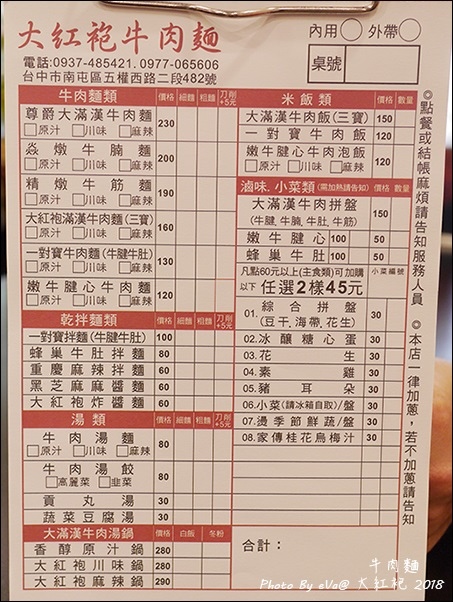 大紅袍牛肉麵
電話:0937-485421. 0977-065606
台中市南屯區五權西路二段482號
內用 外帶
桌號
牛肉麵類 價格 細麵 粗麵 刀削+5元
尊爵大滿漢牛肉麵 230
□原汁 □川味 □麻辣
焱燉牛腩麵 200
□原汁 □川味 □麻辣
精燉牛筋麵 190
□原汁 □川味 □麻辣
大紅袍滿漢牛肉麵(三寶) 160
□原汁 □川味 □麻辣
一對寶牛肉麵(牛腱牛肚) 130
□原汁 □川味 □麻辣
嫩牛腱心牛肉麵 120
□原汁 □川味 □麻辣
乾拌麵類 價格 細麵 粗麵 刀削+5元
一對寶拌麵(牛腱牛肚) 100
蜂巢牛肚拌麵 80
重慶麻辣拌麵 80
黑芝麻麻醬麵 80
大紅袍炸醬麵 80
湯類 價格 細麵 粗麵 刀削+5元
牛肉湯麵 80
□原汁 □川味 □麻辣
牛肉湯餃 80
□高麗菜 □韭菜
貢丸湯 30
蔬菜豆腐湯 30
大滿漢牛肉湯鍋 價格 白飯 冬粉
香醇原汁鍋 280
大紅袍川味鍋 280
大紅袍麻辣鍋 290
米飯類 價格 數量
大滿漢牛肉飯(三寶) 150
一對寶牛肉飯 120
嫩牛腱心牛肉泡飯 120
□原汁 □川味 □麻辣
滷味.小菜類(需加熱請告知) 價格 數量
大滿漢牛肉拼盤 150
(牛腱,牛腩,牛肚,牛筋)
嫩牛腱心 100 50
蜂巢牛肚 100 50
凡點60元以上(主食類)可加購 小菜編號
以下 任選2樣45元
01. 綜合拼盤 30
(豆干,海帶,花生)
02.冰釀糖心蛋 30
03.花生 30
04.素雞 30
05.豬耳朵 30
06.小菜(請冰箱自取)/盤 30
07.燙季節鮮蔬/盤 30
08.家傳桂花烏梅汁 30
合計:
◎點餐或結帳麻煩請告知服務人員
◎本店一律加蔥,若不加蔥請告知
牛肉麵
Photo By eVo@ 大紅袍 2018